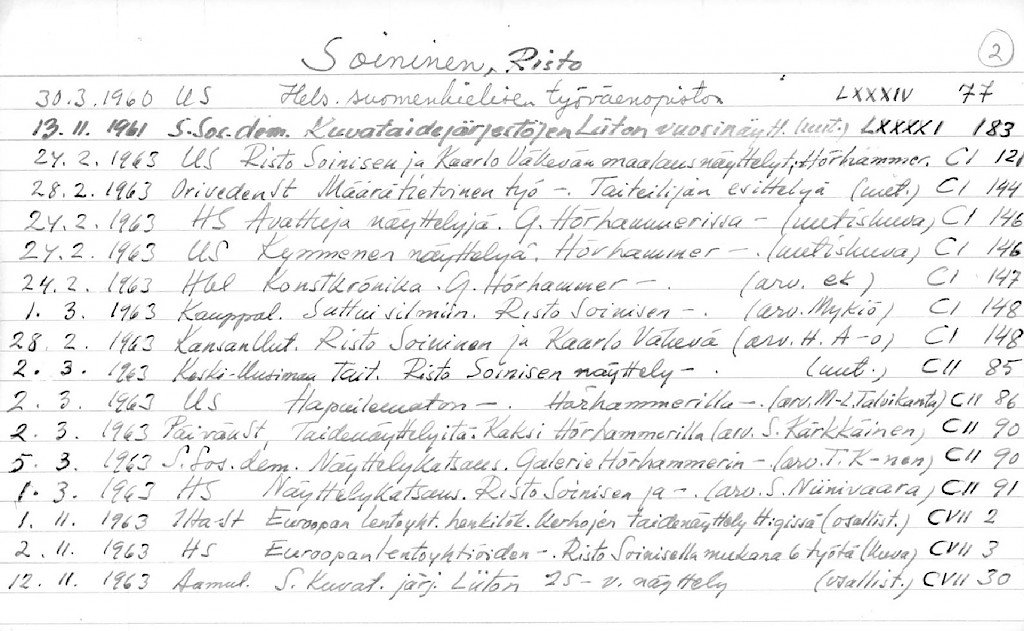 2
Soininen, Risto
30.3.1960 US Hels. suomenkielisen työväenopiston LXXXIV 77
13.11.1961 S.Sos.dem. Kuvataidejärjestöjen Liiton vuosinäytt. (uut.) LXXXXI 183
24.2.1963 US Risto Soinisen ja Kaarlo Väkevän maalausnäyttelyt, Hörhammer. CI 121
28.2.1963 OrivedenSt Määrätietoinen työ -. Taiteilijan esittelyä (uut.) CI 144
24.2.1963 HS Avattuja näyttelyjä. G. Hörhammerissa - (uutiskuva) CI 146
24.2.1963 US Kymmenen näyttelyä. Hörhammer -. (uutiskuva) CI 146
24.2.1963 Hbl Konstkrönika. G. Hörhammer -. (arv. ek) CI 147
1.3.1963 Kauppal. Sattui silmiin. Risto Soinisen -. (arv. Mykiö) CI 148
28.2.1963 KansanUut. Risto Soininen ja Kaarlo Väkevä (arv. H. A-o) CI 148
2.3.1963 Keski-Uusimaa Tait. Risto Soinisen näyttely -. (uut.) CII 85
2.3.1963 US Hapuilematon -. Hörhammerilla -. (arv. M-L Talvikanta) CII 86
2.3.1963 PäivänSt Taidenäyttelyitä. Kaksi Hörhammerilla (arv. S. Kärkkäinen) CII 90
5.3.1963 S.Sos.dem. Näyttelykatsaus. Galerie Hörhammerin - (arv. T. K-nen) CII 90
1.3.1963 HS Näyttelykatsaus. Risto Soinisen ja -. (arv. S. Niinivaara) CII 91
1.11.1963 Ilta-St Euroopan lentoyht. henkilök. kerhojen taidenäyttely H:gissä (osallist.) CVII 2
2.11.1963 HS Euroopan lentoyhtiöiden -. Risto Soinisella mukana 6 työtä (kuva) CVII 3
12.11.1963 Aamul. S. Kuvat. järj. Liiton 25-v. näyttely (osallist.) CVII 30